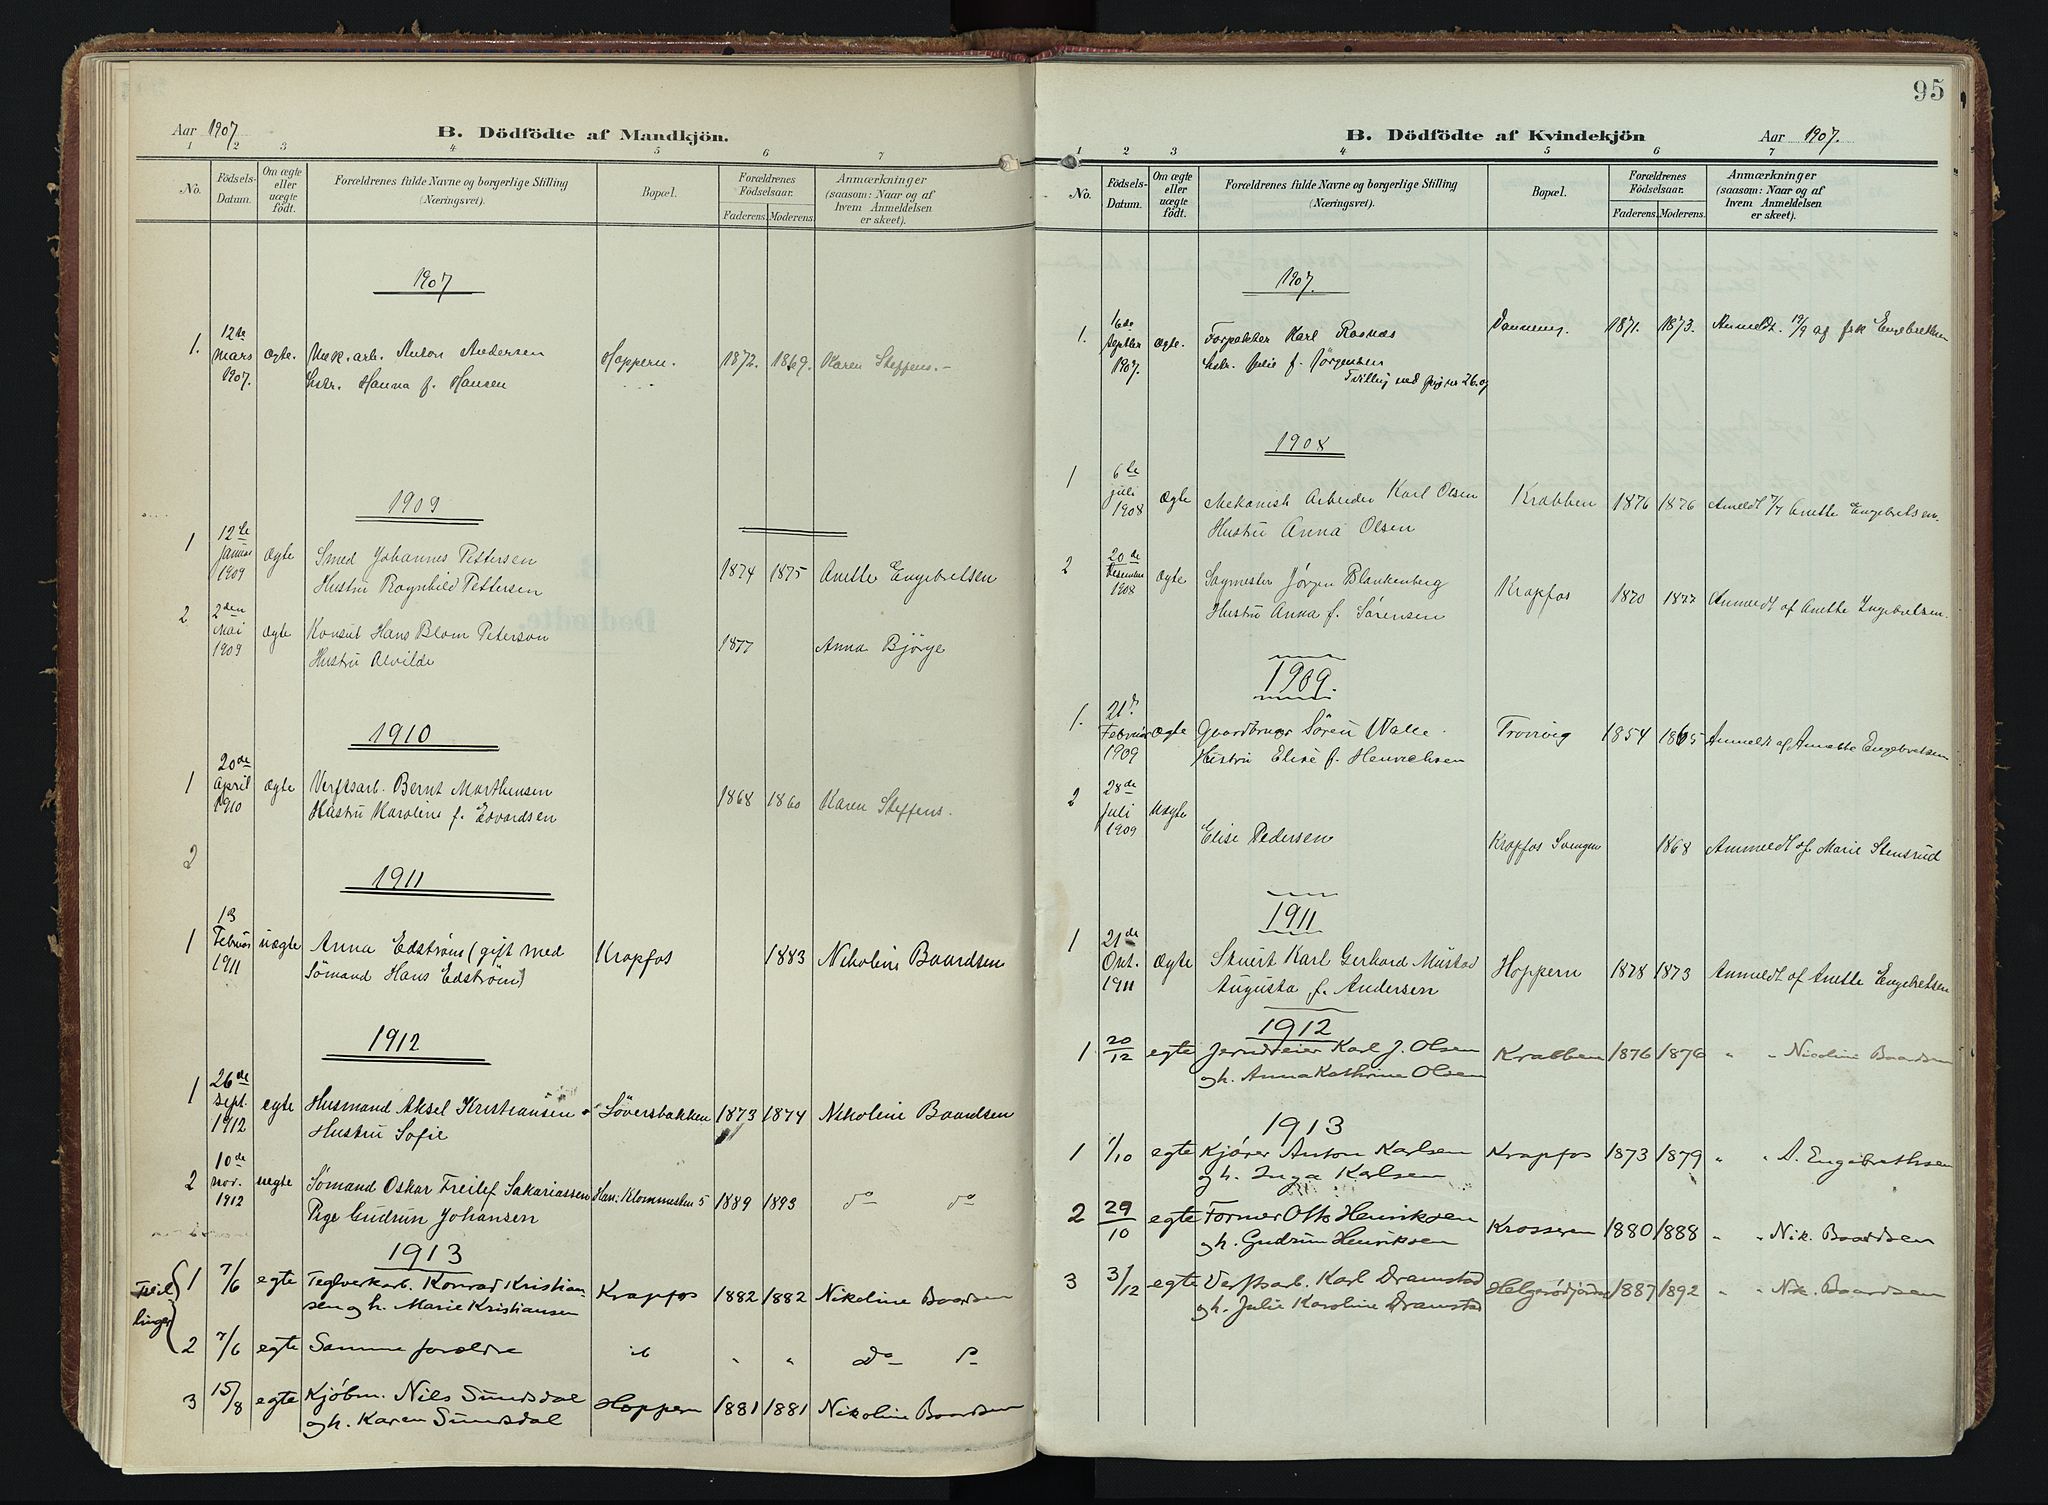 Aar 1907
B. Dödfödte af Mandkjön.
1 2 3 4 5 6 7
No. Födsels-Datum. Om ægte eller uægte födt. Forældrenes fulde Navne og borgerlige Stilling (Næringsvei). Bopæl. Forældrenes Födselsaar. Faderens. Moderens. Anmærkninger (saasom: Naar og af hvem Anmeldelsen er skeet).
1907
1. 12de mars 1907. ægte. Mek. arb. Anton Andersen Hoppern. 1872. 1869. Karen Steffens.-
hstr. Hanna f. Hansen
1909
1 12te Januar 1909 ægte Smed Johannes Pettersen 1874 1875 Anette Engebretsen
Hustru Ragnhild Pettersen
2 2den Mai 1909 ægte Konsul Hans Blom Peterson 1877 Anna Bjørge
Hustru Alvilde
1910
1 20de April 1910 ægte Verftsarb. Bernt Marthinsen 1868 1860 Karen Steffens.
Hustru Karoline f. Edvardsen
2
1911
1 13 Februar 1911 uægte Anna Edstrøm (gift med Krapfos 1883 Nikoline Baardsen
Sømand Hans Edstrøm)
1912
1 26de Sept. 1912 egte Husmand Aksel Kristiansen o Søversbakken 1873 1874 Nikoline Baardsen
Hustru Sofie
2 10de nov. 1912 uegte Sømand Oskar Freilef Sakariassen 1889 1893 do do
Pige Gudrun Johansen
1913
Tvillinger
1 7/6 egte Teglverkarb. Konrad Kristian- Krapfos 1882 1882 Nikoline Baardsen
sen og h. Marie Kristiansen
2 7/6 egte Samme forældre ib " " Do
3 15/8 egte Kjøbm. Nils Sundsdal Hoppern 1881 1881 Nikoline Baardsen
og h. Karen Sundsdal
95
B. Dödfödte af Kvindekjön
Aar 1907.
1 2 3 4 5 6 7
No. Födsels-Datum. Om ægte eller uægte födt. Forældrenes fulde Navne og borgerlige Stilling (Næringsvei). Bopæl. Forældrenes Födselsaar. Faderens. Moderens. Anmærkninger (saasom: Naar og af hvem Anmeldelsen er skeet).
1907.
1. 16de Septbr 1907. ægte. Forpakter Karl Rosnæs 1871. 1873. Anmeldt. 19/9 af frk Engebretsen
hstr. Julie f. Jørgensen
Tvilling med
1908
1 6te juli 1908 ægte Mekanisk Arbeider Karl Olsen Krabben 1876 1876 Anmeldt 7/7 Anette Engebretsen.
Hustru Anna Olsen
2 20de Desember 1908 ægte Sagmester Jørgen Blankenberg Krapfos 1870 1877 Anmeldt af Anette Engebretsen.
Hustru Anna f. Sørensen
1909.
1. 21d Februar 1909 ægte Gaardbruger Søren Walle. Trovivig 1854 1865 Anmeldt af Anette Engebretsen
Hustru Elise f. Henrichsen
2 28de Juli 1909 Uægte Elise Pedersen Krapfos Svingen 1868 Anmeldt af Marie Stensrud
1911
1 21de Okt. 1911 ægte Stuert Karl Gerhard Mustad Hoppern 1878 1873 Anmeldt af Anette Engebretsen
Augusta f. Andersen
1912
1 20/12 egte Jerndreier Karl J. Olsen Krabben 1876 1876 " " Nicoline Baardsen
og h. Anna Kathrine Olsen
1913
1 1/10 egte Kjører Anton Karlsen Krapfos 1873 1879 " " A. Engebrethsen
og h. Inga Kalsen
2 29/10 egte Former Otto Henriksen Krosseren 1880 1888 " " Nik. Baardsen
og h. Gudrun Henriksen
3 3/12 egte Verftsarb. Karl Dramstad Helgerødjordet 1887 1892 " " Nik. Baardsen
og h. Julie Karoline Dramstad